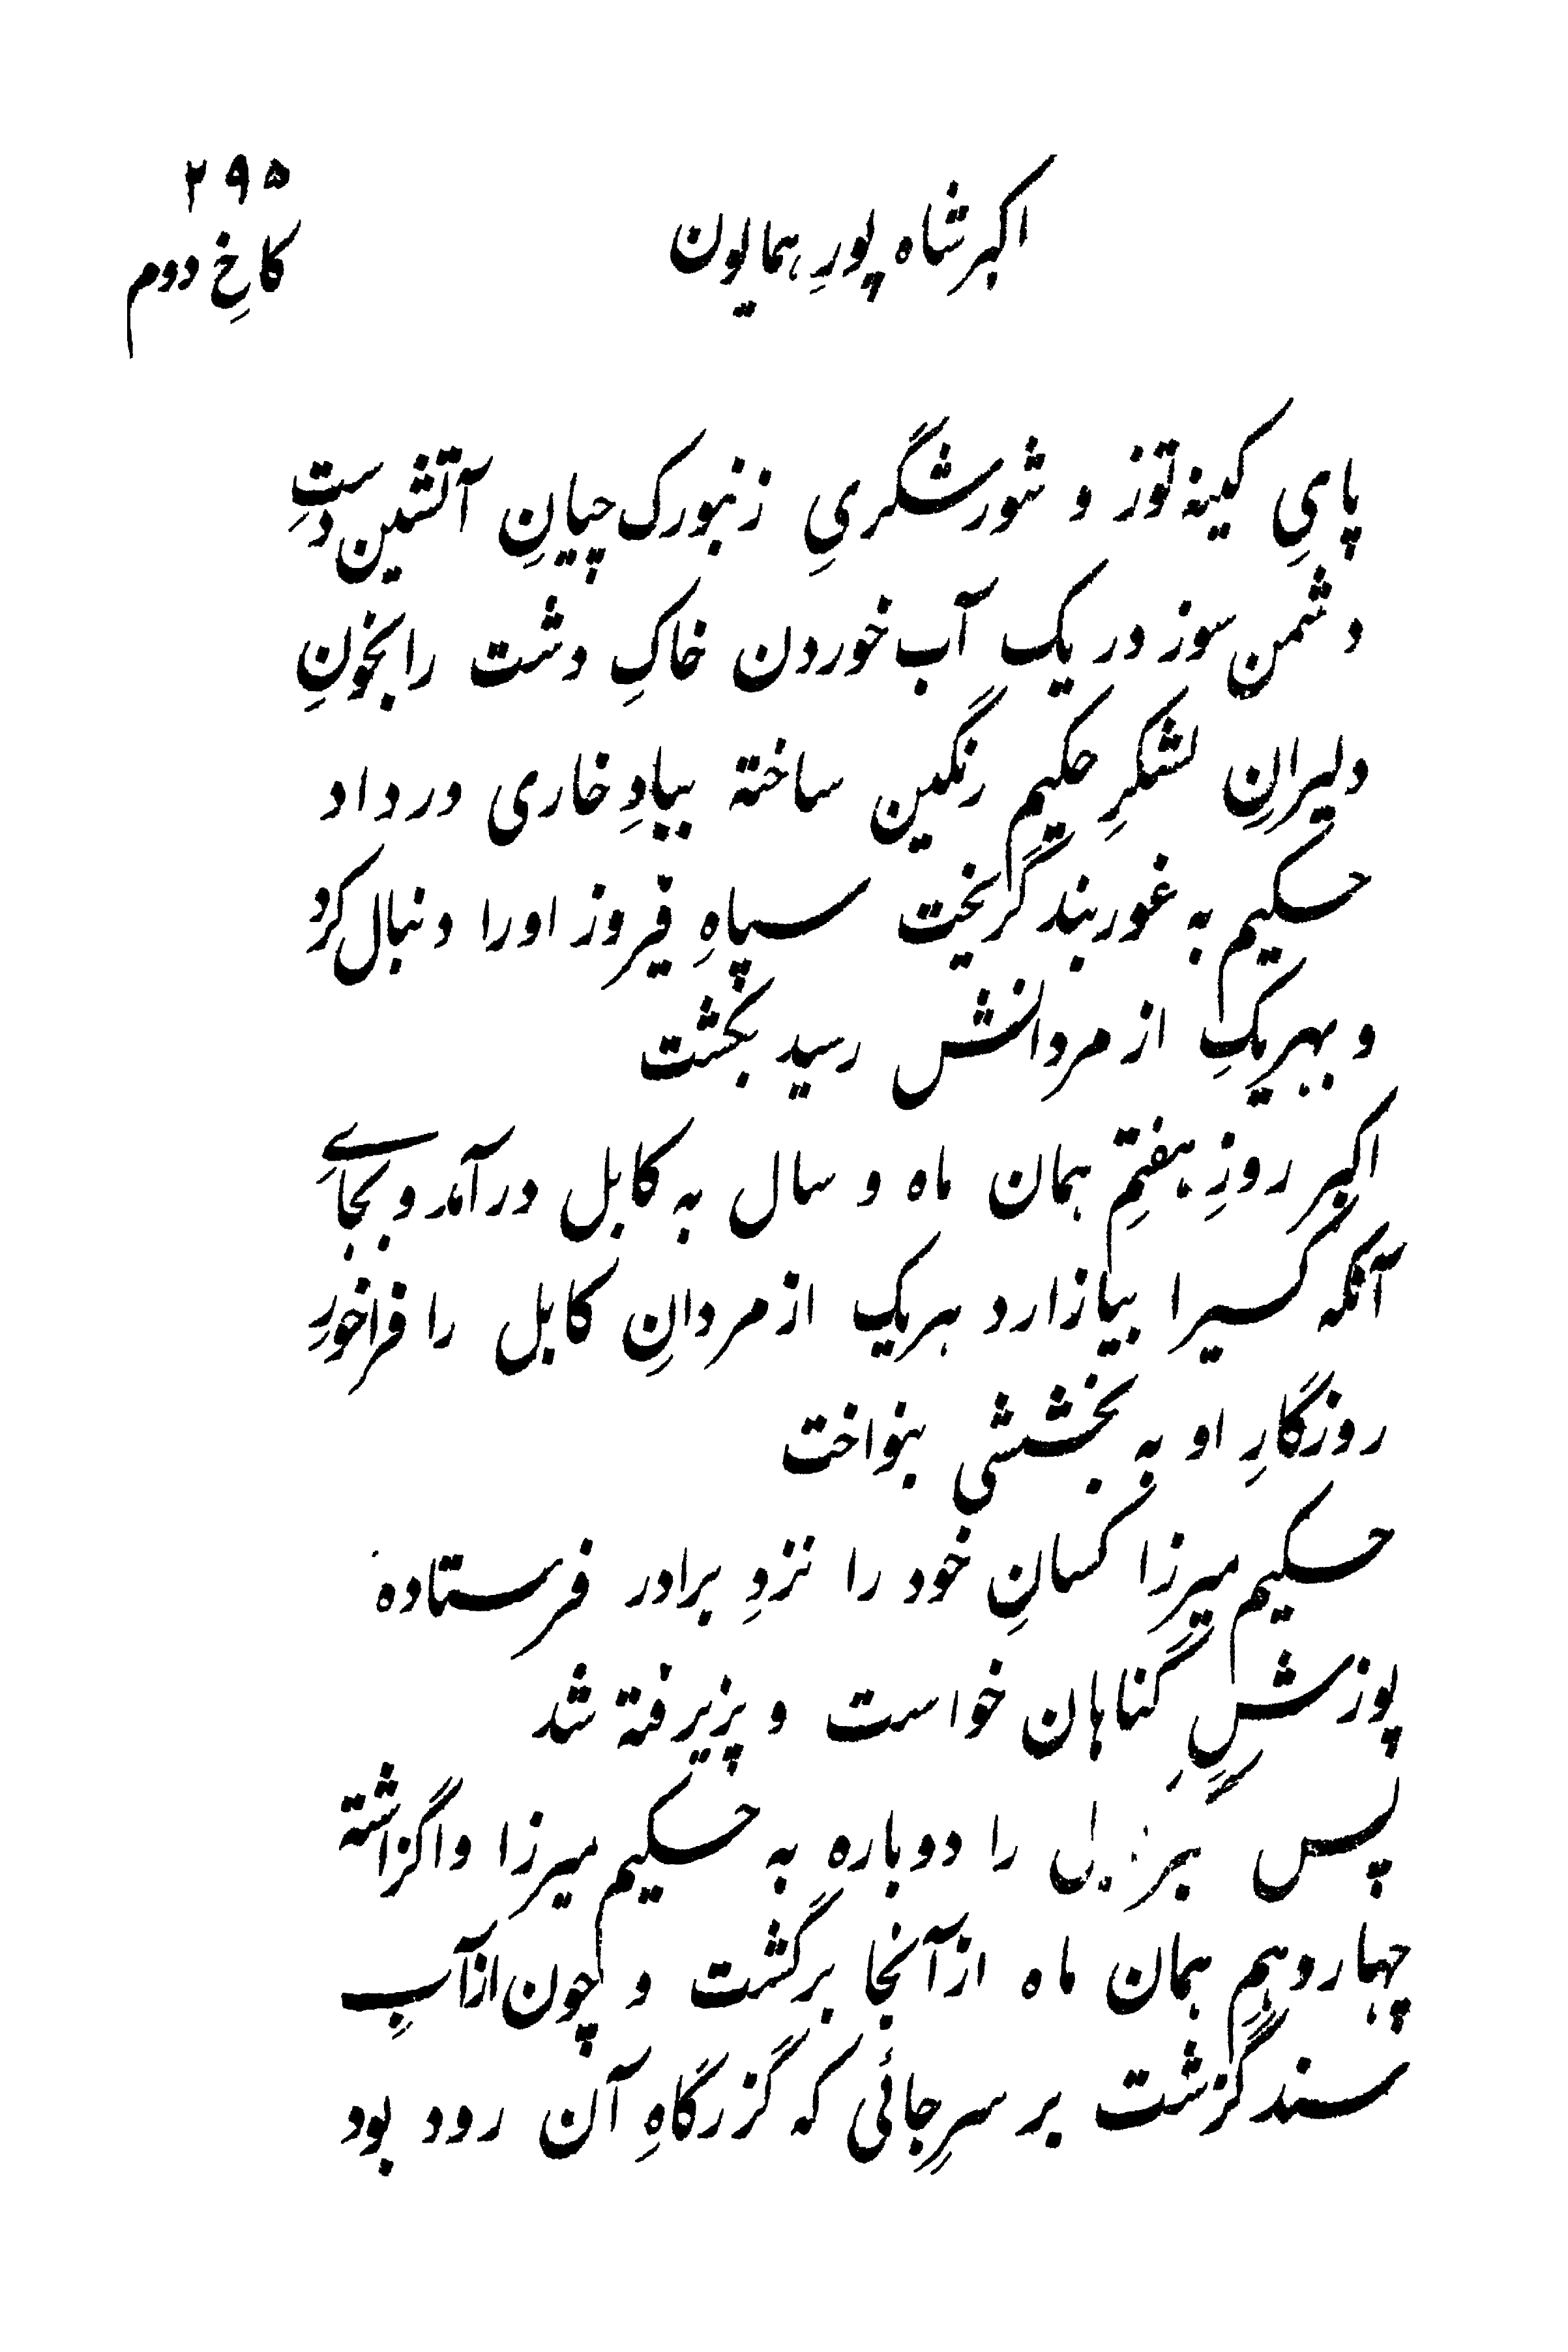 ۲۹۵
اکبر شاه پورِ همایون
کاخِ دوم
پایِ کینه توز و شورشگریِ زنبورک چیانِ آتشین دستِ
دشمن سوز در یک آب خوردن خاکِ دشت را بخونِ
دلیرانِ لشکرِ حکیم رنگین ساخته ببادِ خاری در داد
حکیم به غوربند گریخت سپاهِ فیروز او را دنبال کرد
و بهر یک از مردانش رسید بکشت
اکبر روزِ هفتمِ همان ماه و سال به کابل در آمد و بجایِ
آنکه کسیرا بیازارد هر یک از مردانِ کابل را فراخورِ
روزگارِ او به بخششی بنواخت
حکیم میرزا کسانِ خود را نزدِ برادر فرستاده
پوزشِ گناهان خواست و پزیرفته شد
پس را دوباره به حکیم میرزا واگزاشته
چهاردهمِ همان ماه از آنجا برگشت و چون از آبِ
سند گزشت بر سرِ جائی که گزرگاهِ آن رود بود